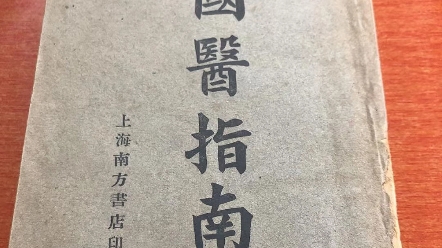 國醫指南
上海南方書店印